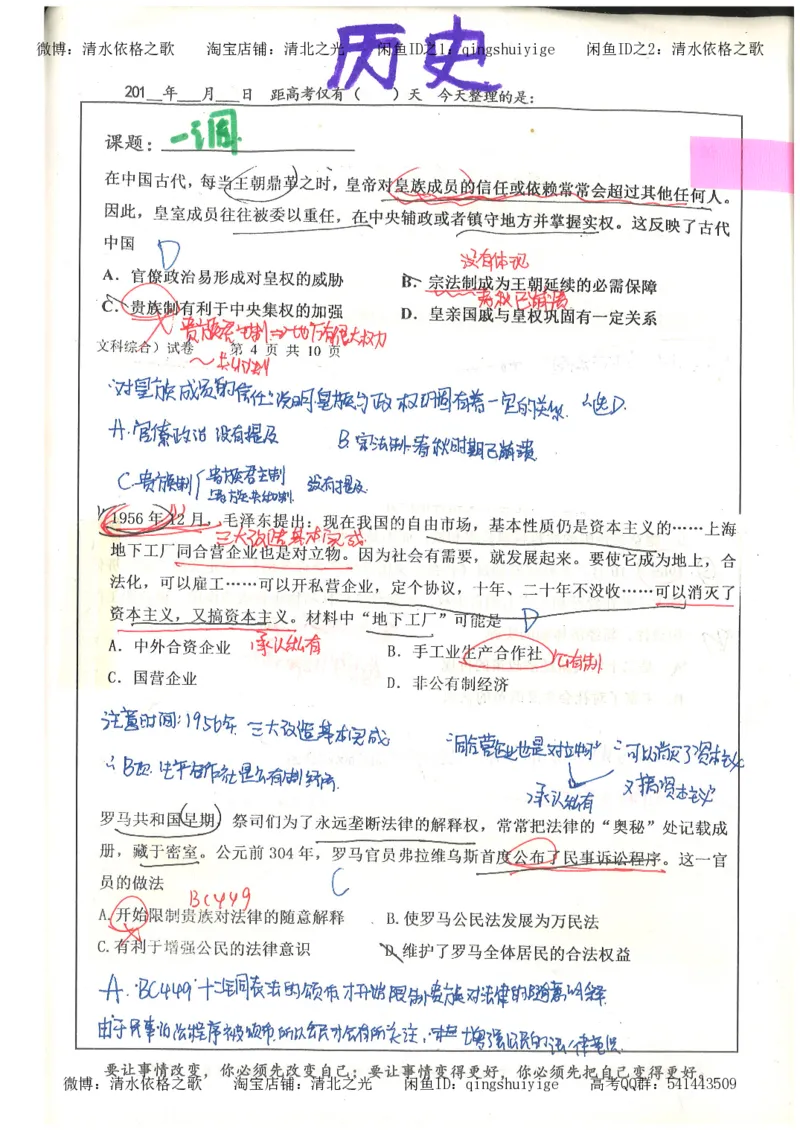 微博：清水依格之歌 淘宝店铺：清北之光 闲鱼ID之1：qingshuiyige 闲鱼ID之2：清水依格之歌
历史
201__年___月___日 距高考仅有（ ）天 今天整理的是：
课题：一调
在中国古代，每当王朝鼎革之时，皇帝对皇族成员的信任或依赖常常会超过其他任何人。
因此，皇室成员往往被委以重任，在中央辅政或者镇守地方并掌握实权。这反映了古代
中国 D
没有体现
A．官僚政治易形成对皇权的威胁 B．宗法制成为王朝延续的必需保障
春秋已崩溃
C．贵族制有利于中央集权的加强 D．皇亲国戚与皇权巩固有一定关系
文科综合）试卷 第 4 页 共 10 页
"对皇族成员的信任"说明皇族与政权巩固有着一定的关系 ∴选D.
A.官僚政治 没有提及 B.宗法制:春秋时期已崩溃
C.贵族制 贵族君主制 没有提及
贵族共和制
1956 年 12 月，毛泽东提出：现在我国的自由市场，基本性质仍是资本主义的……上海
三大改造基本完成
地下工厂同合营企业也是对立物。因为社会有需要，就发展起来。要使它成为地上，合
法化，可以雇工……可以开私营企业，定个协议，十年、二十年不没收……可以消灭了
资本主义，又搞资本主义。材料中“地下工厂”可能是 D
A．中外合资企业 承认私有 B．手工业生产合作社 公有制
C．国营企业 D．非公有制经济
注意时间:1956年 三大改造基本完成
"同合营企业也是对立物" "可以消灭了资本主义
又搞资本主义"
承认私有
罗马共和国早期，祭司们为了永远垄断法律的解释权，常常把法律的“奥秘”处记载成
册，藏于密室。公元前 304 年，罗马官员弗拉维乌斯首度公布了民事诉讼程序。这一官
员的做法 C
BC449
A.开始限制贵族对法律的随意解释 B.使罗马公民法发展为万民法
C.有利于增强公民的法律意识 D.维护了罗马全体居民的合法权益
A.BC449 十二铜表法的颁布才开始限制贵族对法律的随意解释
增强公民的法律意识.
要让事情改变，你必须先改变自己；要让事情变得更好，你必须先把自己变得更好。
微博：清水依格之歌 淘宝店铺：清北之光 闲鱼ID：qingshuiyige 高考QQ群：541443509